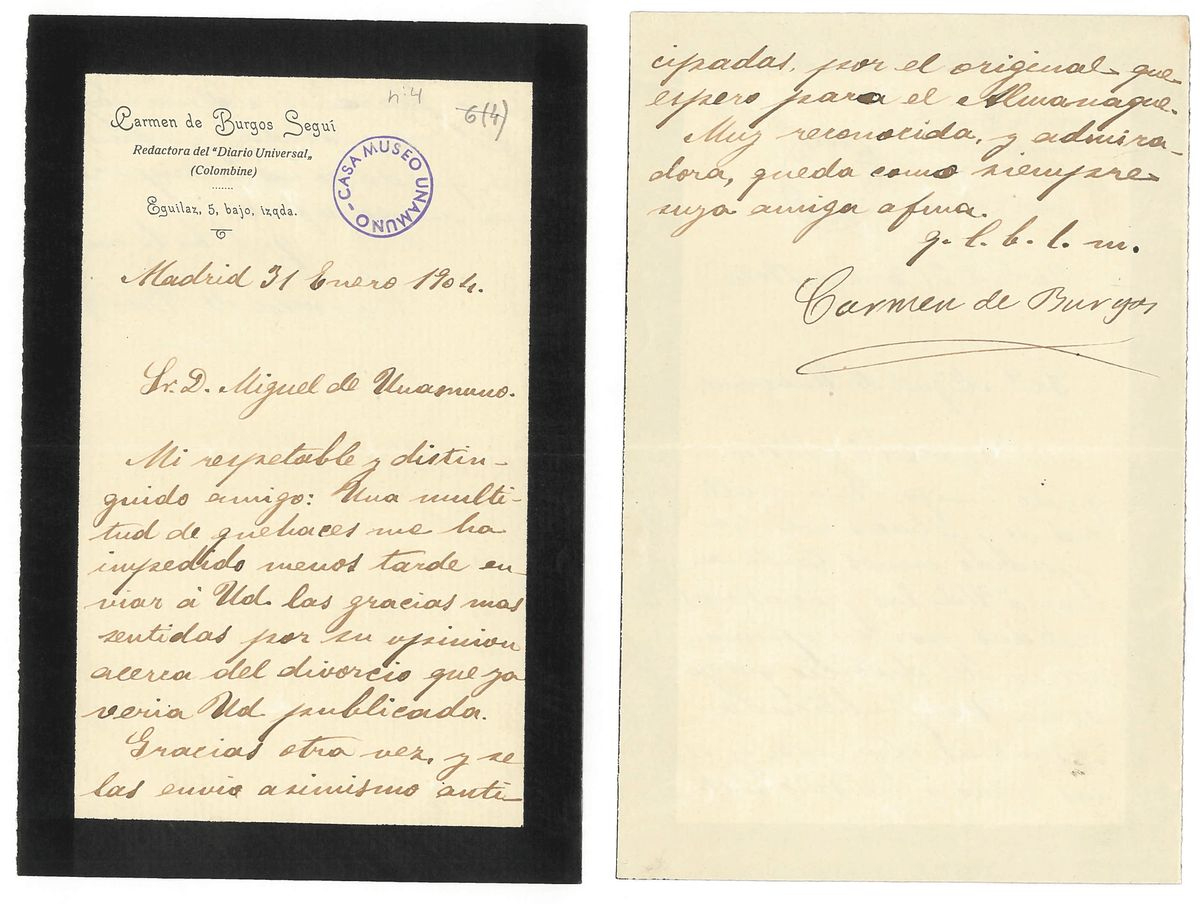 nº 4
6(4)
Carmen de Burgos Seguí
Redactora del "Diario Universal„
(Colombine)
.......
Eguilaz, 5, bajo, izqda.
CASA MUSEO UNAMUNO -
Madrid 31 Enero 1904.
Sr. D. Miguel de Unamuno.
Mi respetable y distin-
guido amigo: Una multi-
tud de quehaces me ha
impedido menos tarde en
viar á Ud. las gracias mas
sentidas por su opinion
acerca del divorcio que ya
veria Ud. publicada.
Gracias otra vez, y se
las envio asimismo anti-
cipadas, por el original que
espero para el Almanaque.
Muy reconocida, y admira-
dora, queda como siempre
suya amiga afma.
q. l. b. l. m.
Carmen de Burgos